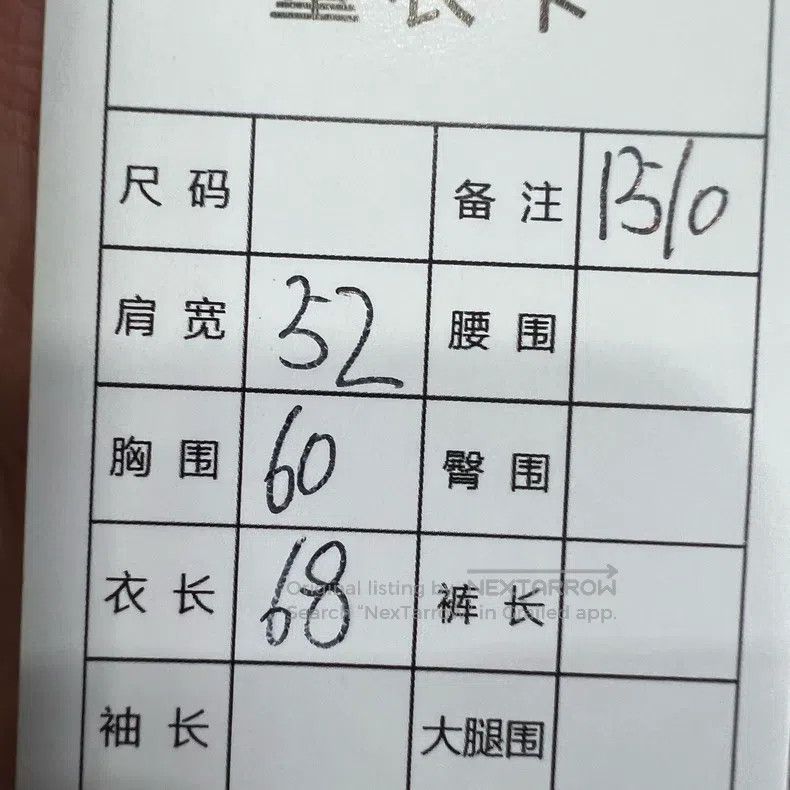 量衣卡
尺码 备注 1510
肩宽 52 腰围
胸围 60 臀围
衣长 68 裤长
Original listing by NEXTARROW
Search "NexTarrow" in Grailed app.
袖长 大腿围